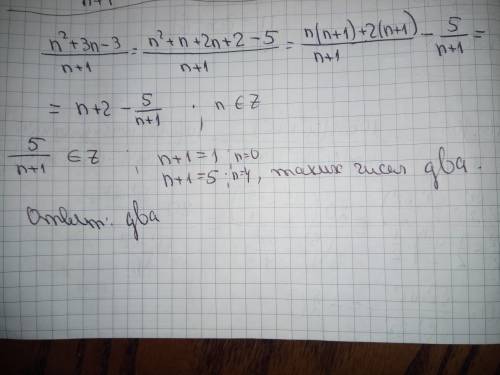 n+1
(n²+3n-3)/(n+1) = (n²+n+2n+2-5)/(n+1) = (n(n+1)+2(n+1))/(n+1) - 5/(n+1) =
= n+2 - 5/(n+1) ; n ∈ Z
5/(n+1) ∈ Z ; n+1=1 ; n=0
n+1=5 ; n=4, таких чисел два.
Ответ: два